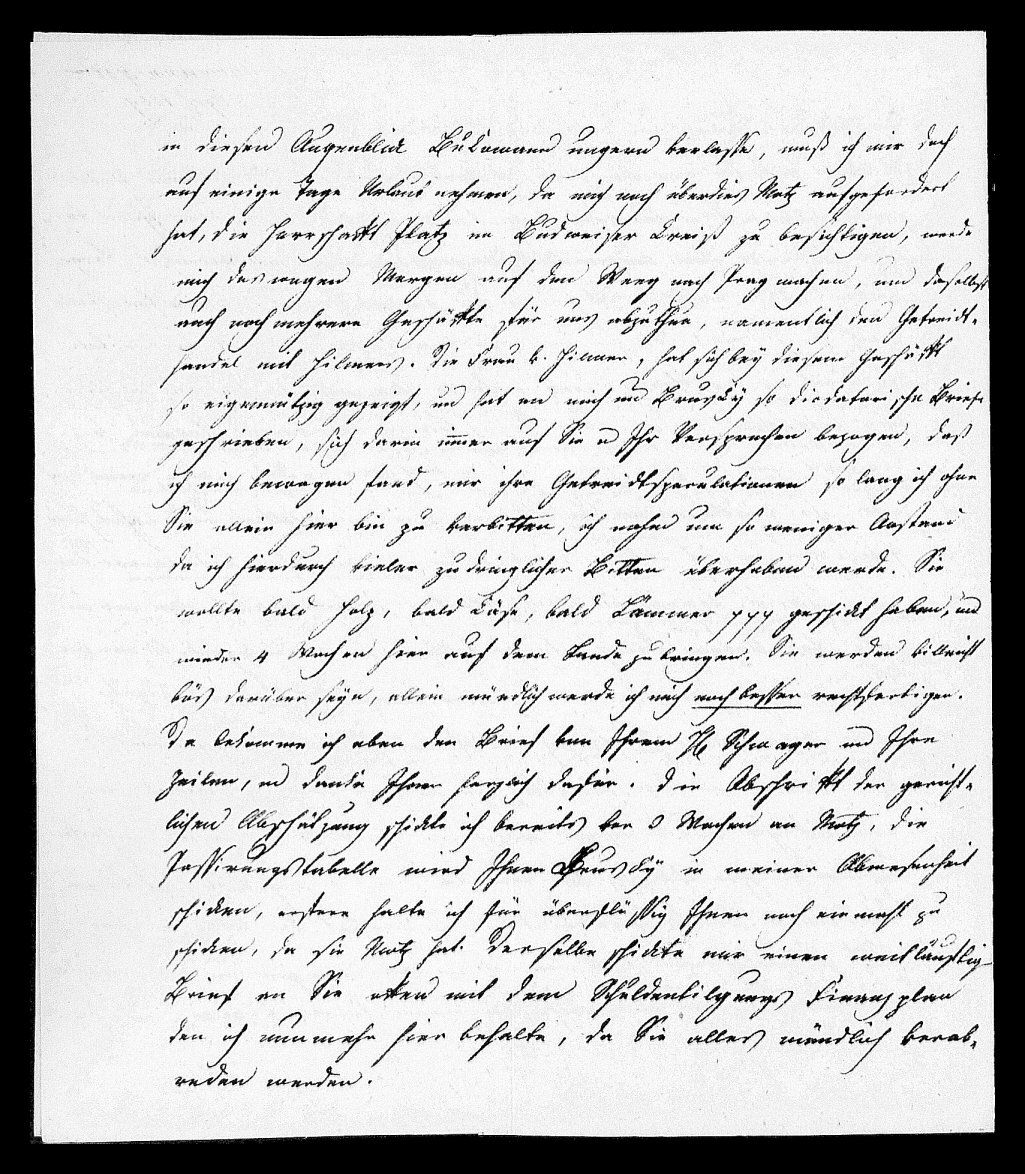 in diesen Augenblick Bukowan ungern verlasse, muß ich mir doch
auf einige Tage Urlaub nehmen, da mich noch überdies Motz aufgefordert
hat, die Herrschafft Platz im Budweiser Creiß zu besichtigen, werde
mich deswegen Morgen auf den Weeg nach Prag machen, um daselbst
auch noch mehrere Geschäffte für uns abzuthun, namentlich den Getreidt-
handel mit Hilmers. Die Frau v. Hilmer, hat sich bey diesem Geschäfft
so eigennützig gezeigt, und hat an mich und Brusky so dictatorische Briefe
geschrieben, sich darin immer auf Sie u Ihr Versprechen bezogen, daß
ich mich bewogen fand, mir ihre Getreidtspeculationen so lang ich ohne
Sie allein hier bin zu verbitten, ich nahm um so weniger Anstand
da ich hierdurch vieler zudringlicher Bitten überhoben werde. Sie
wollte bald Holz, bald Käse, bald Lämmer ppp geschickt haben, und
wieder 4 Wochen hier auf dem Lande zubringen. Sie werden villeicht
bös darüber seyn, allein mündlich werde ich mich noch besser rechtfertigen.
Da bekomme ich eben den Brief von Ihrem H Schwager und Ihre
Zeilen, und danke Ihnen herzlich dafür. Die Abschrifft der gericht-
lichen Abschätzung schickte ich bereits vor 3 Wochen an Motz, die
Passirungstabelle wird Ihnen Brusky in meiner Abwesenheit
schicken, erstere halte ich für überflüssig Ihnen noch einmahl zu
schicken, da sie Motz hat. Derselbe schickte mir einen weitläuftig
Brief an Sie offen mit dem Schuldentilgungs Finanzplan
den ich nunmehr hier behalte, da Sie alles mündlich verab-
reden werden.